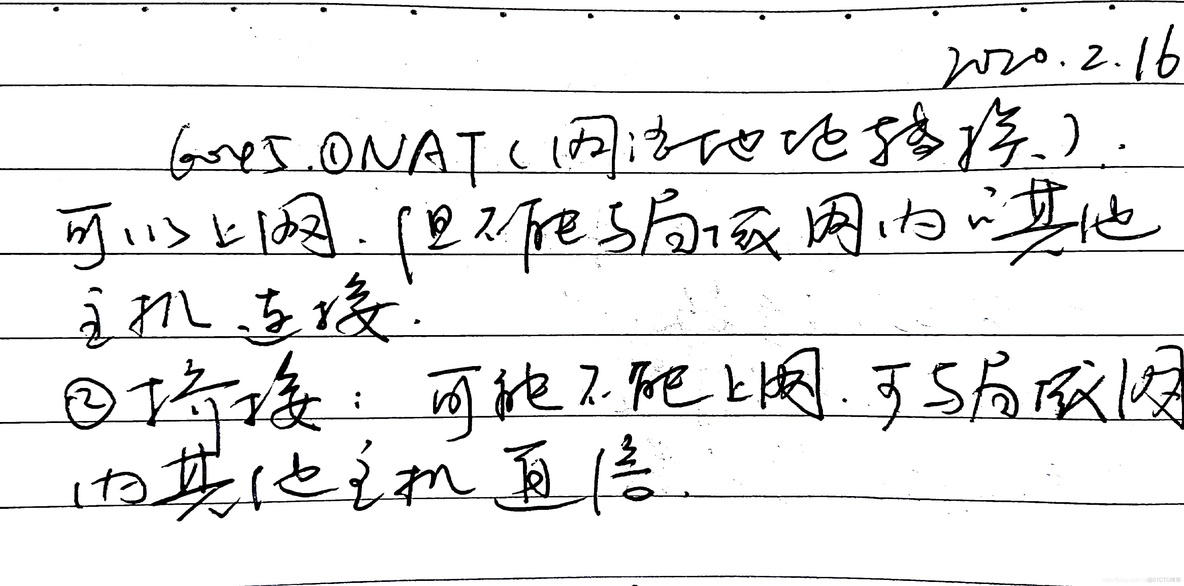 2020.2.16
①NAT(网络地址转换).
可以上网.但不能与局域网内的其他
主机连接.
②桥接: 可能不能上网.可与局域网
内其他主机通信.
@51CTO博客